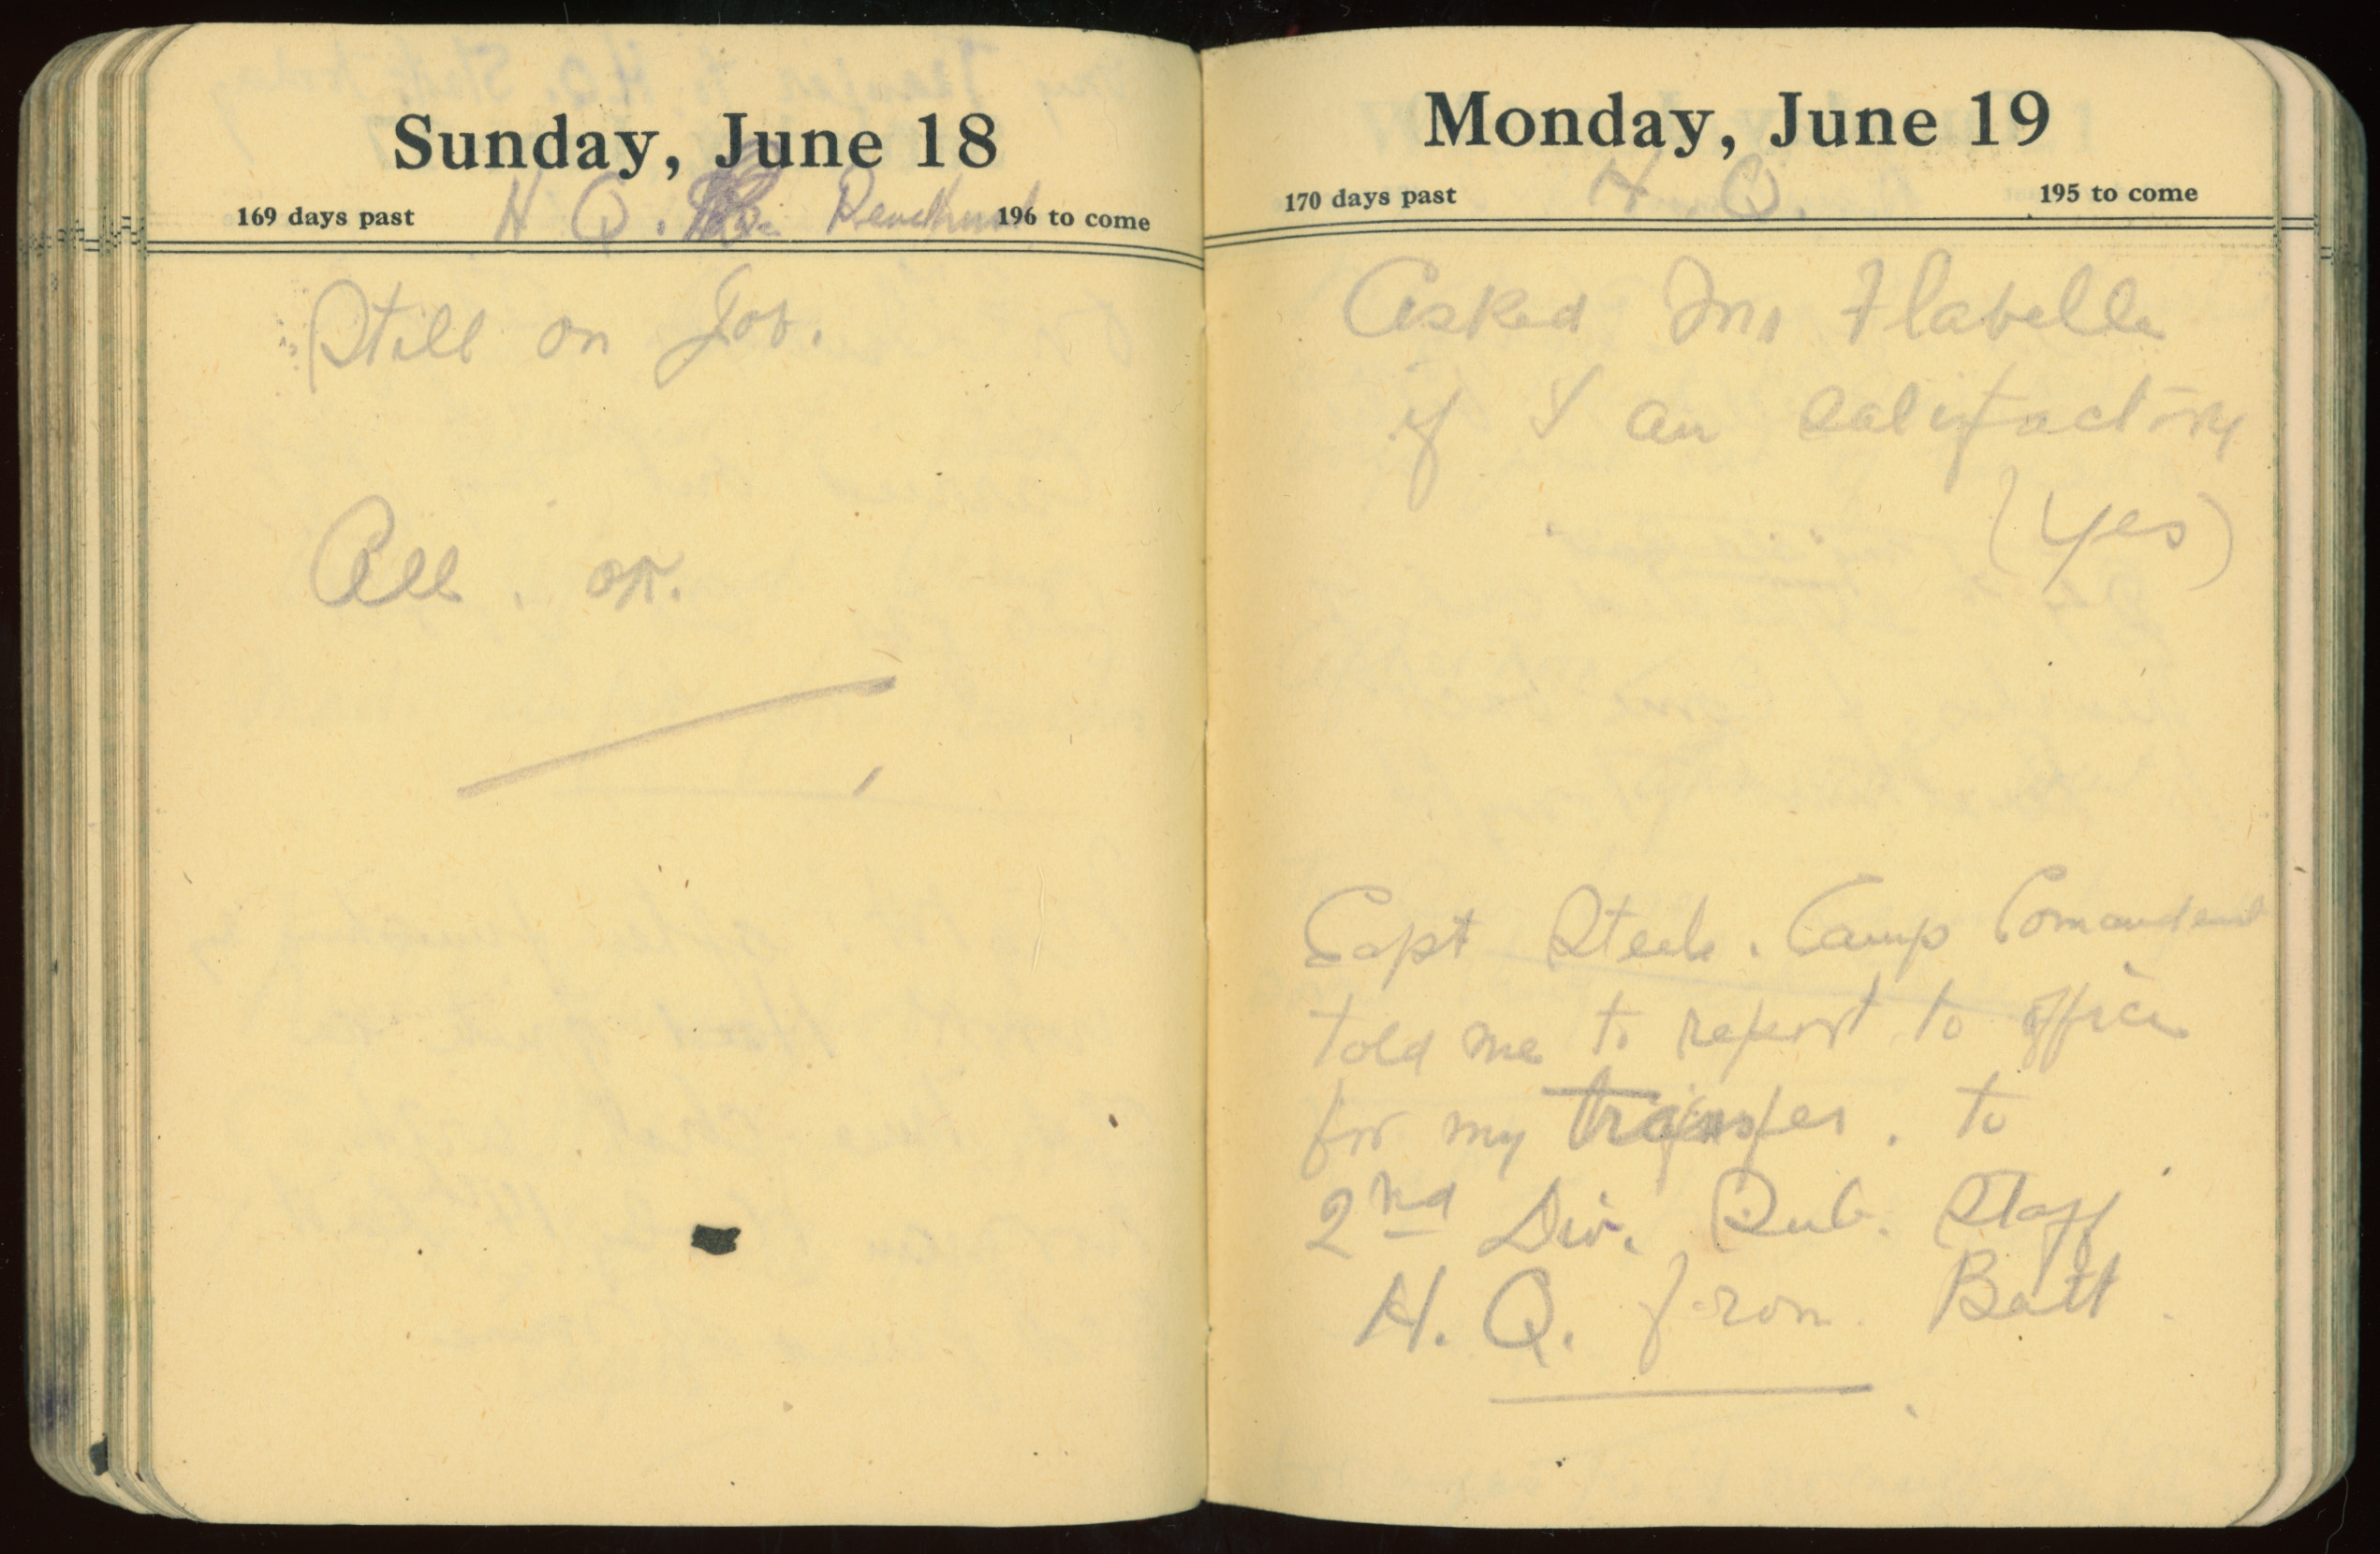 Sunday, June 18
169 days past
H Q.
196 to come
Still on Job.
All. OK.
Monday, June 19
170 days past
H. Q.
195 to come
Asked Mr Flabelle
if I am satisfactory
(Yes)
Capt Steele. Camp Comandent
told me to report to office
for my transfer. to
2nd Div. Sub. Staff
H. Q. from Batt.